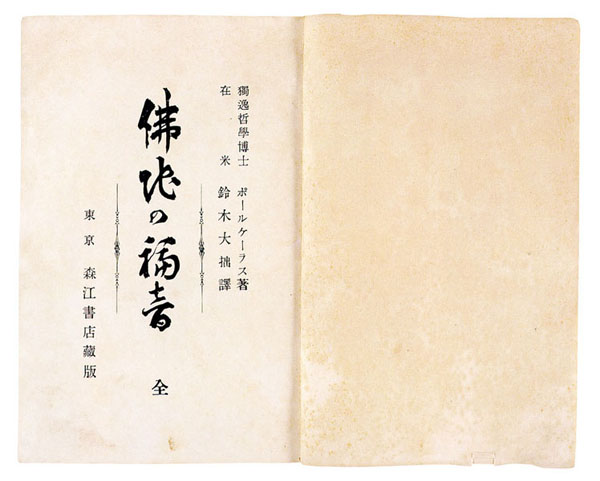 獨逸哲學博士 ポールケーラス著
在米 鈴木大拙譯
佛陀の福音 全
東京 森江書店藏版